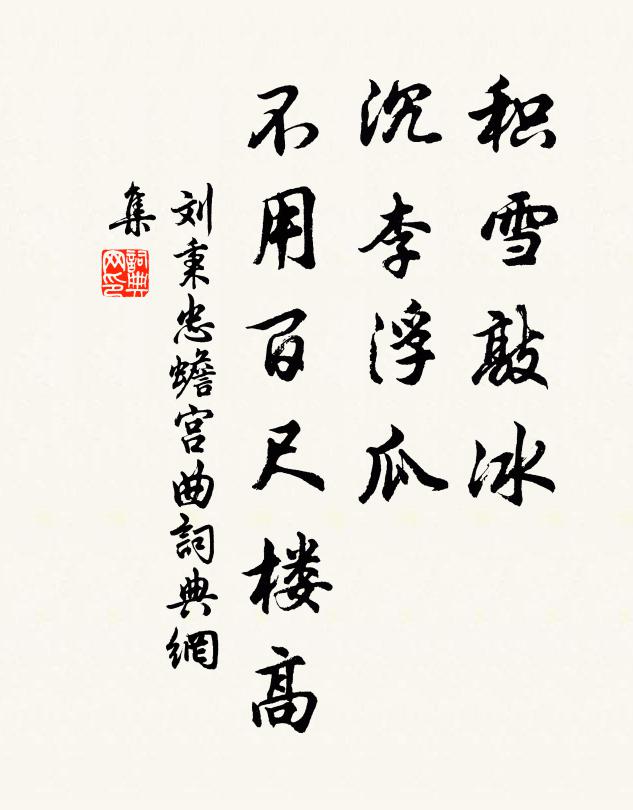 积雪敲冰
沉李浮瓜
不用百尺楼高
刘秉忠蟾宫曲詞典網
集
詞典
网印